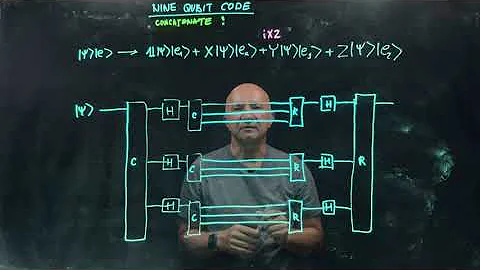 NINE QUBIT CODE
CONCATENATE :
iXZ
|Ψ⟩|e⟩ → 𝟙|Ψ⟩|e₁⟩ + X|Ψ⟩|e₂⟩ + Y|Ψ⟩|e₃⟩ + Z|Ψ⟩|e₂⟩
|Ψ⟩ H C R H
C H C R H R
H C R H